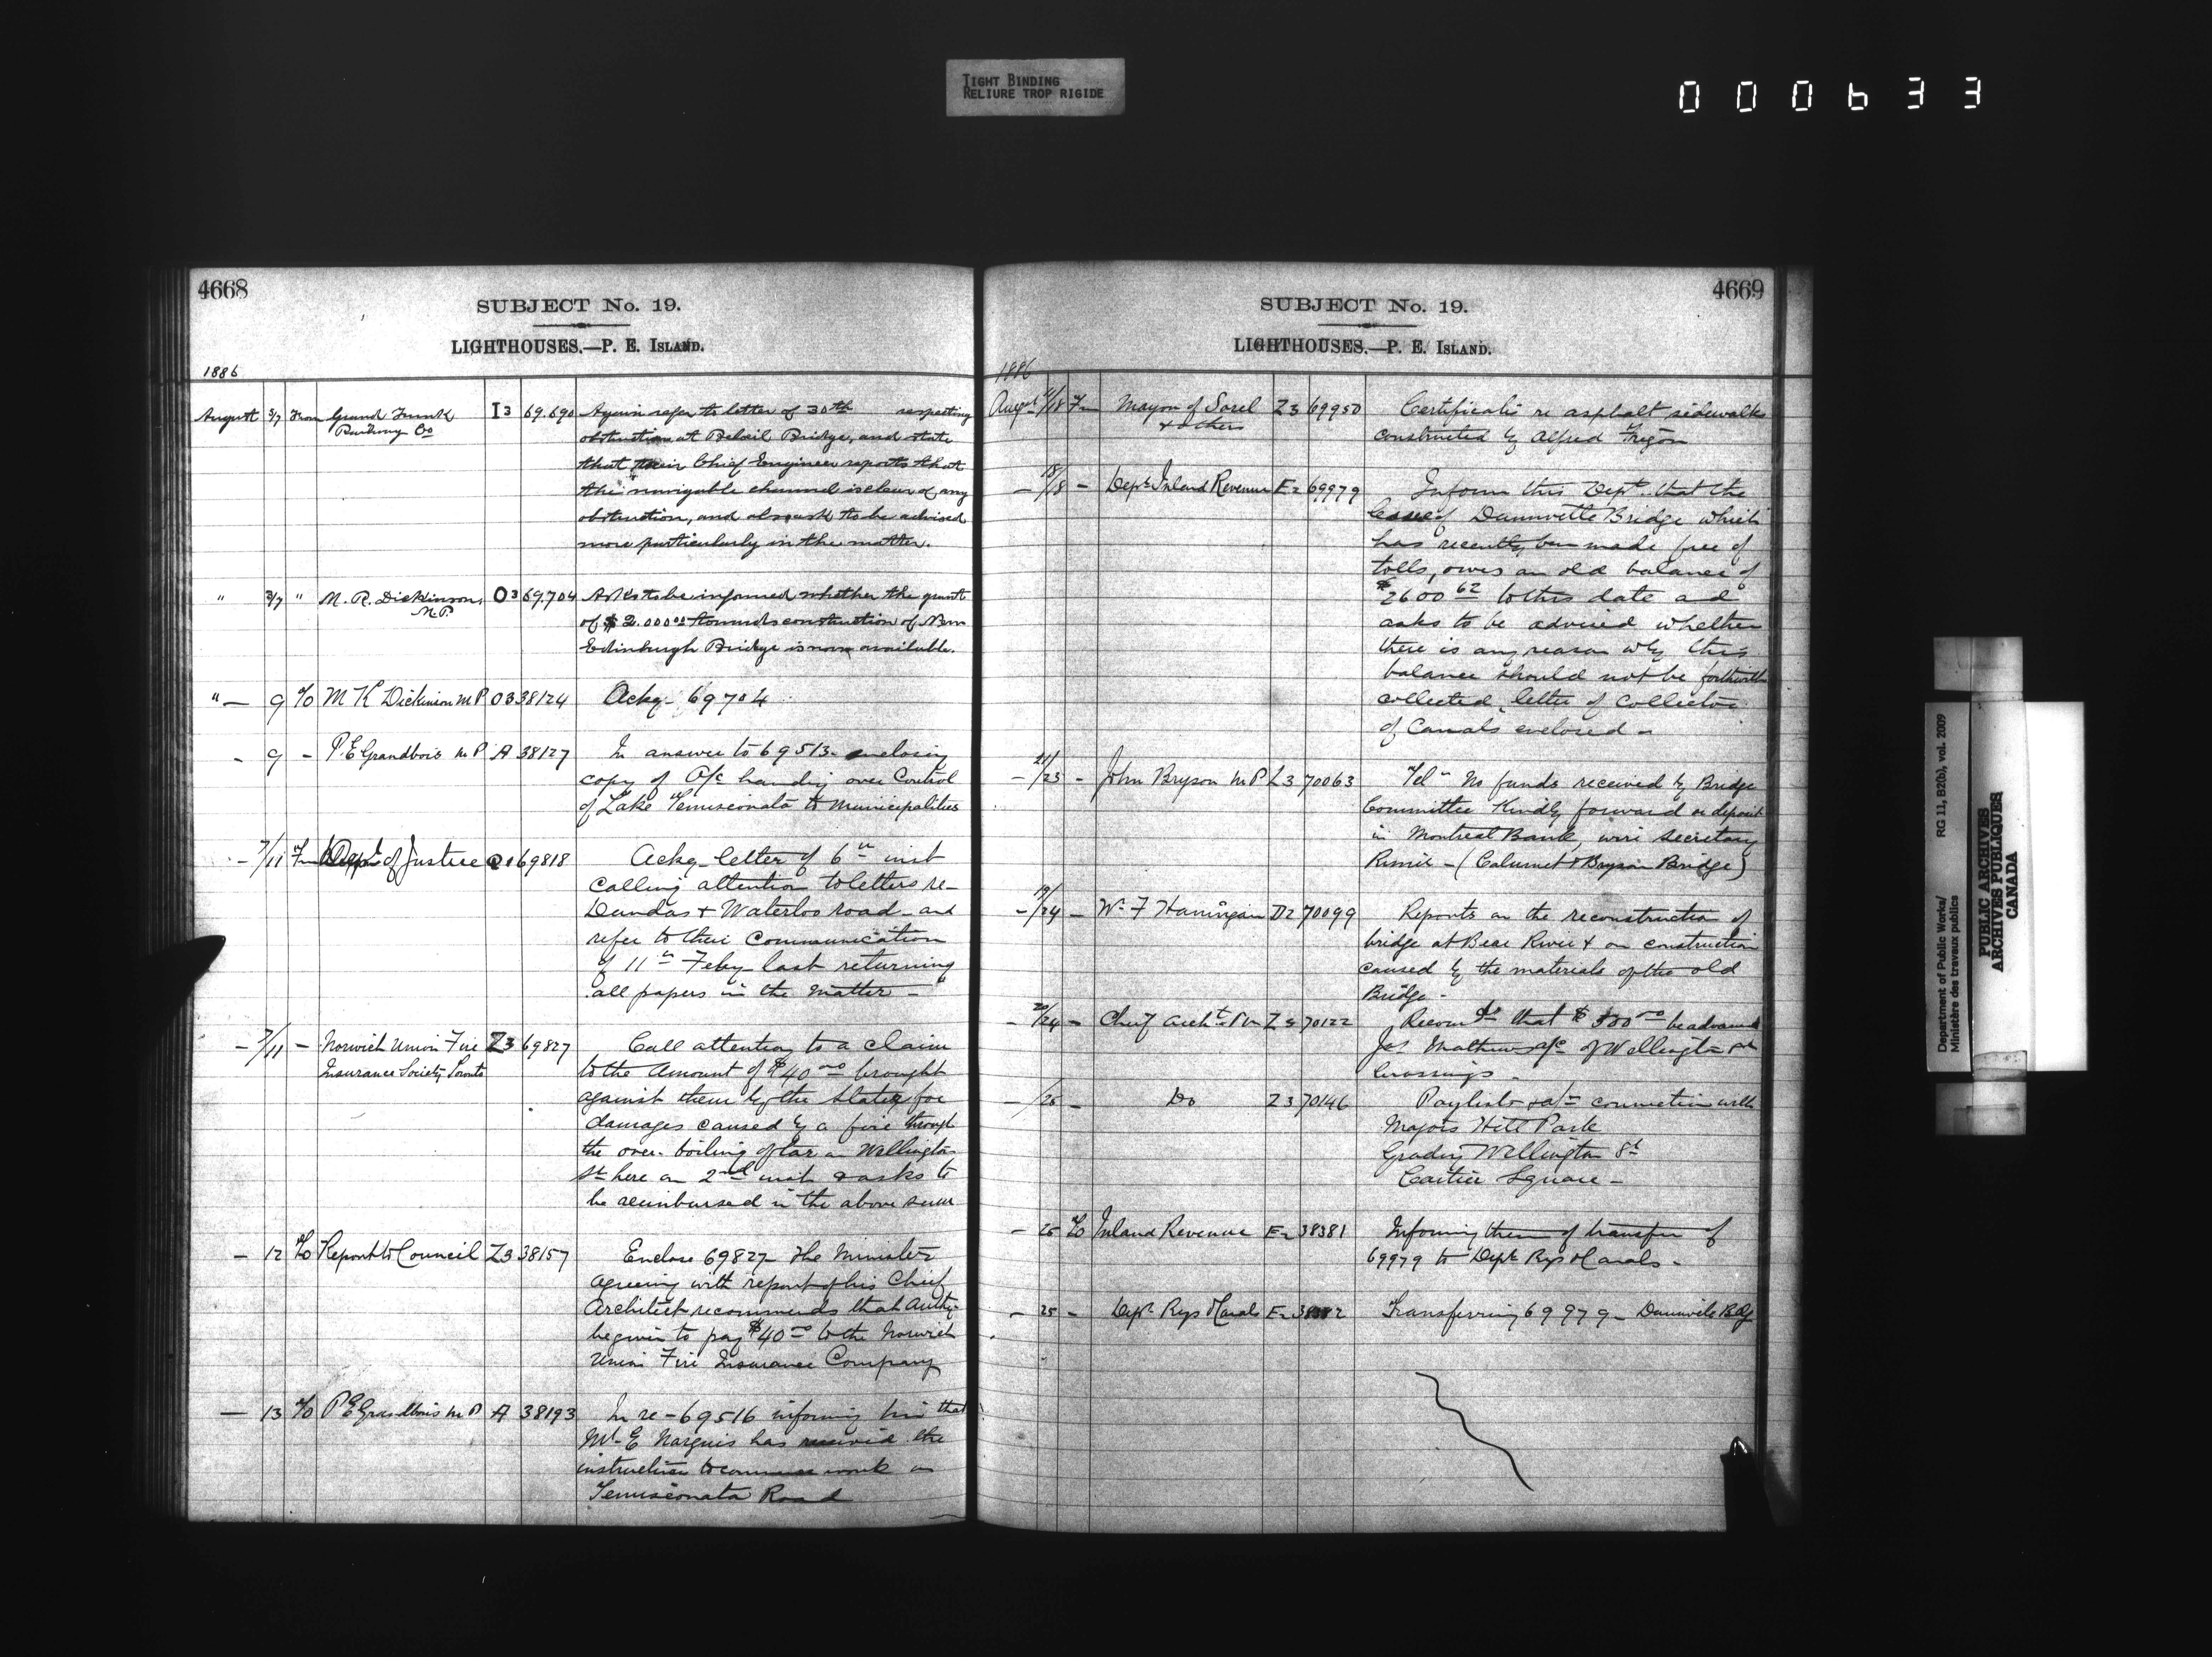 TIGHT BINDING
RELIURE TROP RIGIDE
000633
4668
SUBJECT No. 19.
LIGHTHOUSES.—P. E. ISLAND.
1886
August 3/7 From Grand Trunk Railway Co I3 69.690 Again refer to letter of 30th respecting
obstruction at Beloeil Bridge, and state
that their Chief Engineer reports that
the navigable channel is clear of any
obstruction, and also ask to be advised
more particularly in the matter.
" 3/7 " M. R. Dickinson, M.P. O3 69.704 Asks to be informed whether the grant
of $2.000.00 towards construction of New
Edinburgh Bridge is now available.
" — 9 To M K Dickinson M P O3 38124 Ackg 69704
- 9 - P. E Grandbois M P A 38127 In answer to 69513 enclosing
copy of O/c handing over Control
of Lake Temiscouata to Municipalities
- 7/11 Fm Dept of Justice Q1 69818 Ackg letter of 6th inst
calling attention to letters re-
Dundas & Waterloo road - and
refer to their Communication
of 11th Feby last returning
all papers in the matter -
- 7/11 - Norwich Union Fire Insurance Society Toronto Z3 69827 Call attention to a claim
to the Amount of $40.00 brought
against them by the Slater for
damages caused by a fire through
the over-boiling of tar on Wellington
St here on 2nd inst & asks to
be reimbursed in the above sum
- 12 To Report to Council Z3 38157 Enclose 69827 - The Minister
agreeing with report of his Chief
Architect recommends that Authy
be given to pay $40.00 to the Norwich
Union Fire Insurance Company
— 13 To P E Grandbois M P A 38193 In re - 69516 informing him that
Mr. E Marquis has received the
instruction to commence work on
Temiscouata Road
4669
SUBJECT No. 19.
LIGHTHOUSES.—P. E. ISLAND.
1886
August /18 Fm Mayor of Sorel & others Z3 69950 Certificate re asphalt sidewalks
constructed by Alfred Trigon
- 18/18 - Dept Inland Revenue E2 69979 Inform this Dept. that the
Lessee of Dunnville Bridge which
has recently been made free of
tolls, owes an old balance of
$2600 62 to this date and
asks to be advised whether
there is any reason why this
balance should not be forthwith
collected, letter of Collector
of Canals enclosed
- 21/23 - John Bryson M P L3 70063 Tel - No funds received by Bridge
Committee Kindly forward or deposit
in Montreal Bank, wire Secretary
- (Calumet & Bryson Bridge)
- 19/24 - Wm F Hannigan D2 70099 Reports on the reconstruction of
bridge at Bear River & on construction
caused by the materials of the old
Bridge -
- 20/24 - Chief Archt Z3 70122 Recomds that $500.00 be advanced
Jas Mathews a/c of Wellington St
Crossings -
- /26 - Do Z3 70146 Paylists & a/cs connection with
Majors Hill Park
Grading Wellington St
Cartier Square -
- 25 To Inland Revenue E2 38381 Informing them of transfer of
69979 to Dept Rys & Canals -
- 25 - Dept Rys & Canals E2 38382 Transferring 69979 - Dunnville Bdg
Department of Public Works/
Ministère des travaux publics
RG 11, B2(b), vol. 2009
PUBLIC ARCHIVES
ARCHIVES PUBLIQUES
CANADA